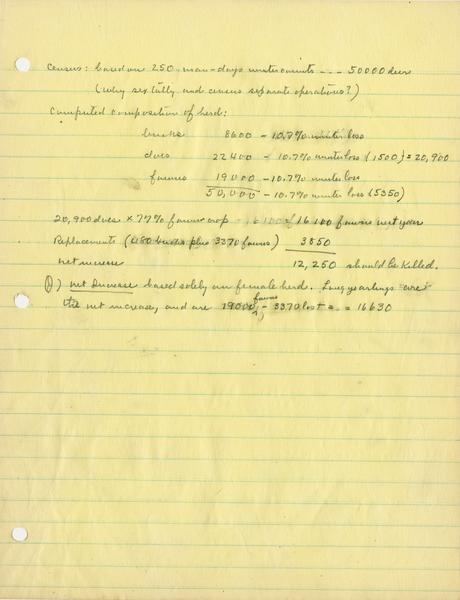 Census: based on 250 man-days winter counts --- 50000 deer
(Why sex tally and census separate operations?)
Computed composition of herd:
bucks 8600 - 10.7% winter loss
does 22400 - 10.7% winter loss (1500) = 20,900
fawns 19000 - 10.7% winter loss
50,000 - 10.7% winter loss (5350)
20,900 does × 77% fawn crop = 16100 fawns next year
Replacements (480 bucks plus 3370 fawns) 3850
net increase 12,250 should be killed.
1) net Increase based solely on female herd. Long yearlings "are"
the net increase, and are 19000 fawns - 3370 lost = = 16630